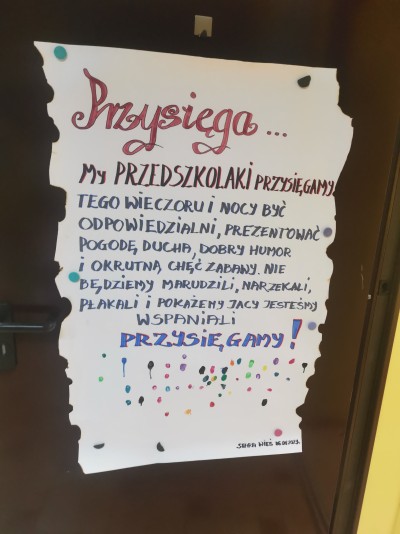 Przysięga...
My PRZEDSZKOLAKI PRZYSIĘGAMY,
TEGO WIECZORU I NOCY BYĆ
ODPOWIEDZIALNI, PREZENTOWAĆ
POGODĘ DUCHA, DOBRY HUMOR
I OKRUTNĄ CHĘĆ ZABAWY. NIE
BĘDZIEMY MARUDZILI, NARZEKALI,
PŁAKALI I POKAŻEMY JACY JESTEŚMY
WSPANIALI
PRZYSIĘGAMY!